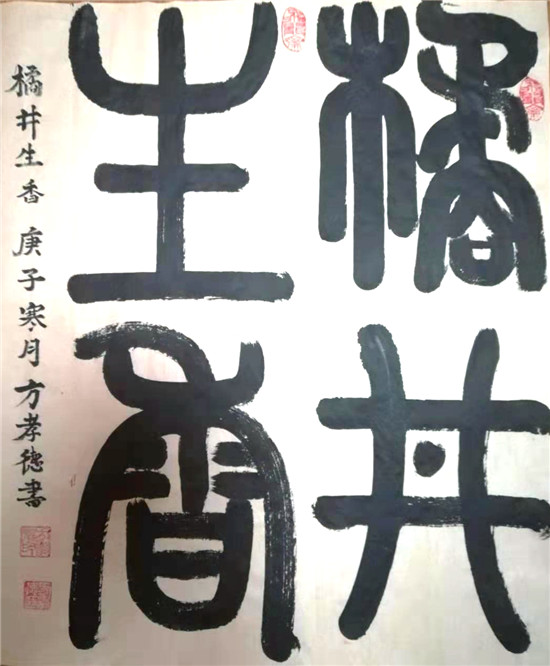 橘井
生香
橘井生香 庚子寒月方孝德書